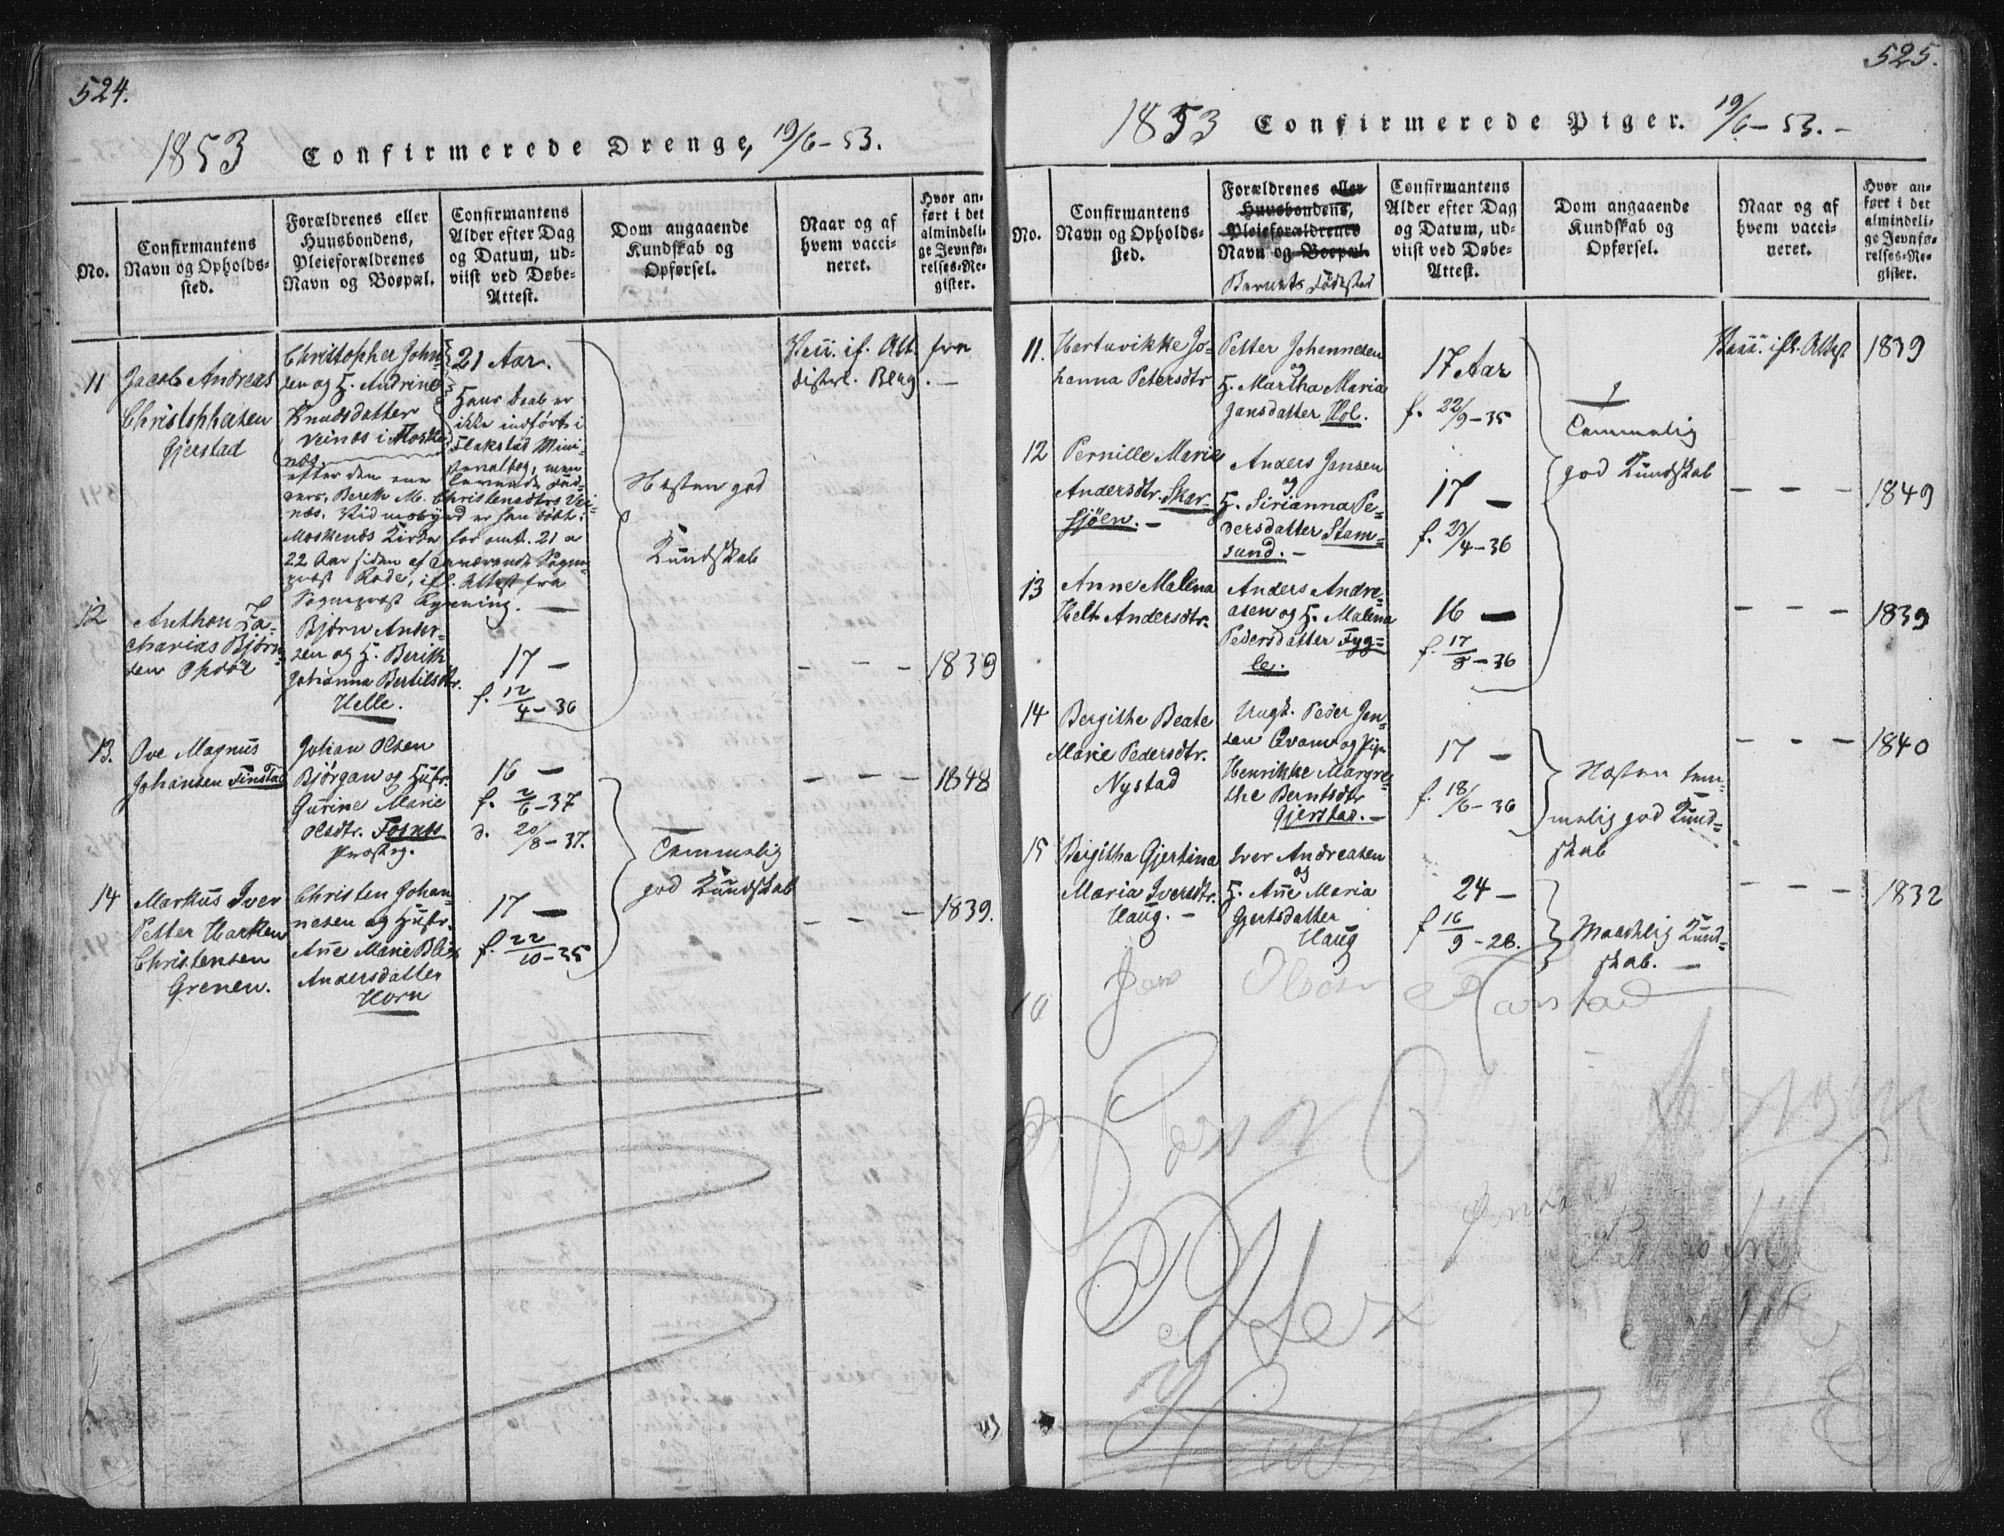 524.
1853 Confirmerede Drenge, 19/6-53.
No.
Confirmantens
Navn og Opholds-
sted.
Forældrenes eller
Huusbondens,
Pleieforældrenes
Navn og Boepæl.
Confirmantens
Alder efter Dag
og Datum, ud-
viist ved Døbe-
Attest.
Dom angaaende
Kundskab og
Opførsel.
Naar og af
hvem vacci-
neret.
Hvor an-
ført i det
almindeli-
ge Jevnfø-
relses-Re-
gister.
11
Jacob Andreas
Christophersen
Gjerstad
Christopher John-
sen og H. Andrine
Knudsdatter
Veinæs i
næs.
21 Aar.
Hans Daab er
ikke indført i
Flakstad Mini-
sterialbog, men
efter den ene levende Fad-
ders, Berith M. Christensdtrs Vei-
næs, Vidnesbyrd er han døbt i
Moskenæs Kirke for omt. 21 a
22 Aar siden af daværende Sogne-
præst Rode, ifl. Attest fra
Sognepræst
Næsten god
Kundskab
if. Att. fra
Berg. -
12
Anthon Za-
charias Bjørn-
sen
Bjørn Ander-
sen og H. Berith
Johanna Bertilsdtr.
Helle.
17 -
f. 12/4-36
- - -
1839
13.
Ove Magnus
Johansen Finstad
Johan Olsen
Bjørgan og Hustr.
Gurine Marie
Olsdtr. Fosnæs
Præsteg.
16 -
f. 2/6-37
d. 20/8-37.
- - -
1848
14
Markus Iver
Petter Harken
Christensen
Grenen.
Christen Johan-
nesen og Hustr.
Ane Marie Blix
Andersdatter
Horn
17 -
f. 22/10-35
Temmelig
god Kundskab
- - -
1839.
525.
1853 Confirmerede Piger. 19/6-53.-
No.
Confirmantens
Navn og Opholds-
sted.
Forældrenes eller
Huusbondens,
Pleieforældrenes
Navn og Boepæl.
Barnets Fødested
Confirmantens
Alder efter Dag
og Datum, ud-
viist ved Døbe-
Attest.
Dom angaaende
Kundskab og
Opførsel.
Naar og af
hvem vacci-
neret.
Hvor an-
ført i det
almindeli-
ge Jevnfø-
relses-Re-
gister.
11.
Hartvikke Jo-
hanna Petersdtr
Petter Johannesen
og
H. Martha Maria
Jansdatter Hol.
17 Aar
f. 22/9-35
Temmelig
god Kundskab
Vacc. ifl. Attest
1839
12
Pernille Marie
Andersdtr. Skar-
sjøen. -
Anders Jensen
og
H. Sirianna Pe-
dersdatter Stam-
sund. -
17 -
f. 23/4-36
- - - -
1849
13
Anne Malena
Helt Andersdtr.
Anders Andre-
asen og H. Malena
Pedersdatter Fyg-
le.
16 -
f. 17/8-36
- - - -
1839
14
Bergithe Beate
Marie Pedersdtr.
Nystad
Ungk. Peder Jen-
sen Qvam og Pige
Henrikke Margre-
the Berntsdtr
Gjerstad. -
17 -
f. 18/6-36
Næsten tem-
melig god Kund-
skab
- - -
1840
15
Bergitha Gjertina
Maria Iversdtr.
Haug. -
Iver Andreasen
og
H. Ane Maria
Gjertsdatter
Haug
24 -
f 16/9-28.
Maadelig Kund-
skab. -
- - -
1832
16
Petter